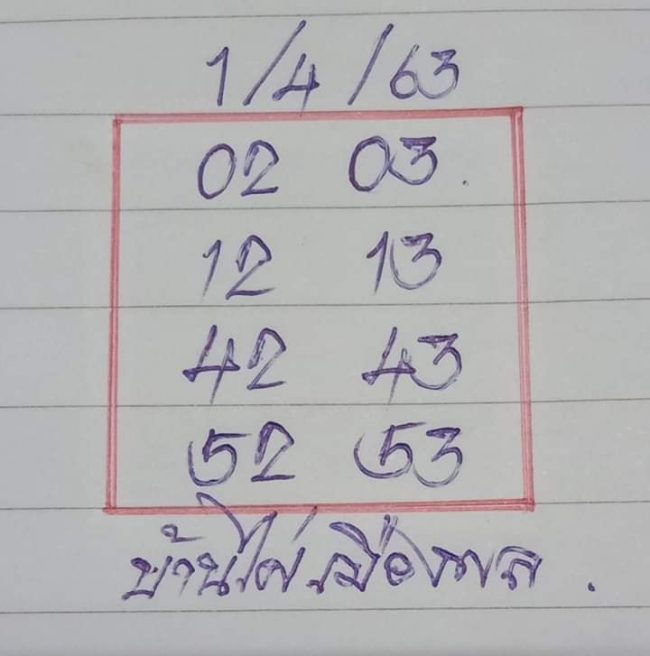 1/4/63
02 03.
12 13
42 43
52 53
บ้านไผ่ เมืองพล.